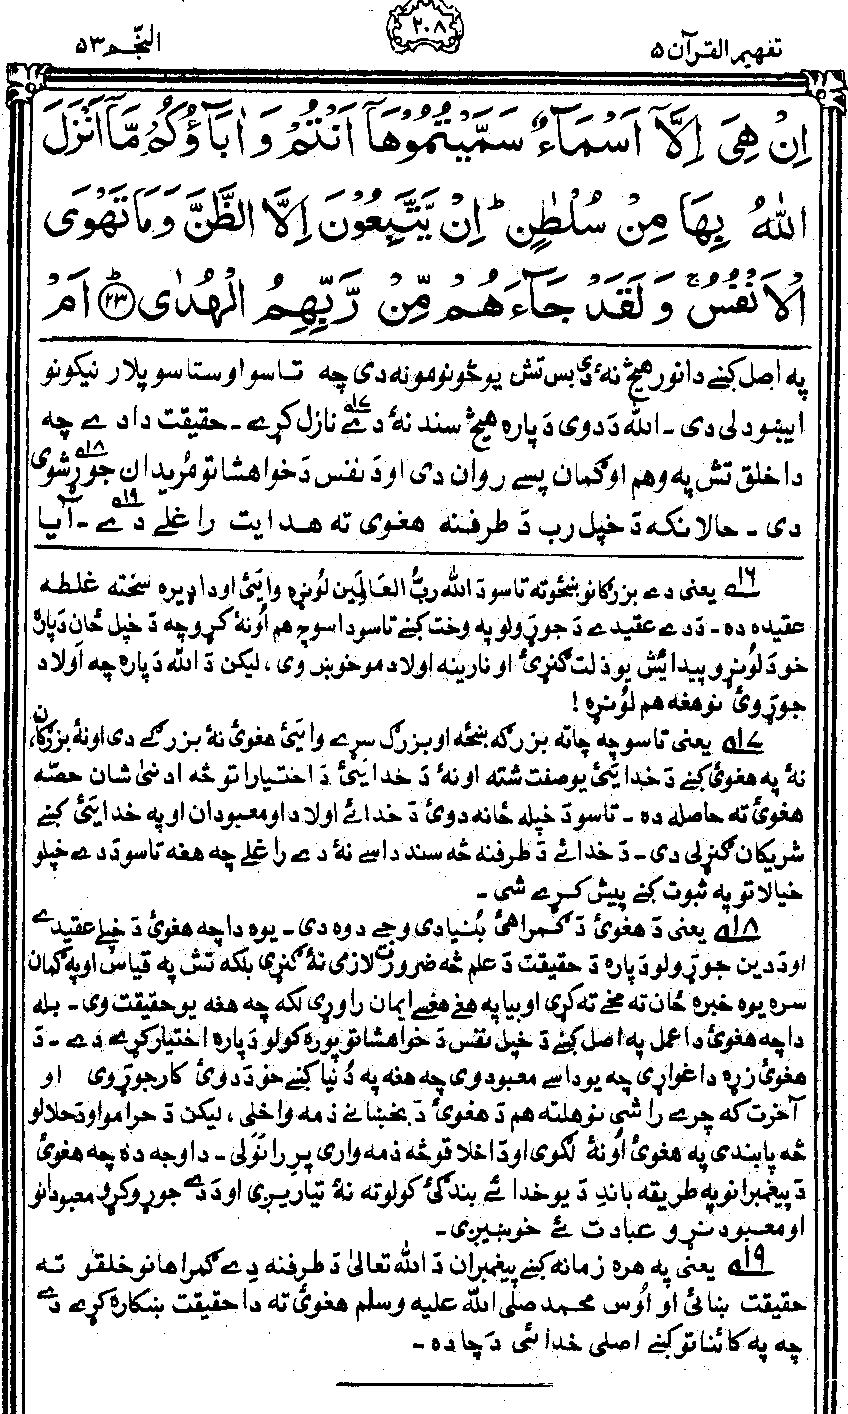 تفهيم القرآن ۵
۲۰۸
النّجم ۵۳
اِنْ هِيَ اِلَّآ اَسْمَآءٌ سَمَّيْتُمُوْهَآ اَنْتُمْ وَ اٰبَآؤُكُمْ مَّآ اَنْزَلَ
اللهُ بِهَا مِنْ سُلْطٰنٍ ؕ اِنْ يَّتَّبِعُوْنَ اِلَّا الظَّنَّ وَمَا تَهْوَى
الْاَنْفُسُ ۚ وَلَقَدْ جَآءَهُمْ مِّنْ رَّبِّهِمُ الْهُدٰى ؕ ﴿۲۳﴾ اَمْ
په اصل کښې دا نور هيڅ نۀ دي بس تش يو څو نومونه دي چه تاسو او ستاسو پلار نيکونو
ايښودلى دى ـ الله دَ دوى دَ پاره هيڅ سند نۀ دے ۱۷ نازل کړے ـ حقيقت دا دے چه
دا خلق تش په وهم او ګمان پسے روان دى او دَ نفس دَ خواهشاتو مُريدان جوړ شوى ۱۸
دى ـ حالانکه دَ خپل رب دَ طرفنه هغوى ته هدايت راغلے دے ۱۹ ـ آيا
۱۶ يعنى دے بزرګانو ښځو ته تاسو دَ الله ربُّ العالَمِين لُوڼره وايئ او دا ډيره سخته غلطه
عقيده ده ـ دَ دے عقيدے دَ جوړولو په وخت کښے تاسو دا سوچ هم اُونۀ کړو چه دَ خپل ځان دَ پاره
خو دَ لوڼرو پيدائش يو ذلت ګنړئ او نارينه اولاد مو خوښ وى، ليکن دَ الله دَ پاره چه اَولاد
جوړوئ نو هغه هم لُوڼره !
۱۷ يعنى تاسو چه چاته بزرګه ښځه او بزرګ سړے وايئ هغوئ نۀ بزرګے دى او نۀ بزرګان،
نۀ په هغوئ کښے دَ خدايئ يو صفت شته او نۀ دَ خدايئ دَ اختياراتو څه ادنىٰ شان حصّه
هغوئ ته حاصله ده ـ تاسو دَ خپله ځانه دوئ دَ خدائے اولاد او معبودان او په خدايئ کښے
شريکان ګنړلى دى ـ دَ خدائے دَ طرفنه څه سند داسے نۀ دے راغلے چه هغه تاسو دَ دے خپلو
خيالاتو په ثبوت کښے پيش کړے شى ـ
۱۸ يعنى دَ هغوئ دَ ګمراهئ بُنيادى وجے دوه دى ـ يوه دا چه هغوئ دَ خپلے عقيدے
او دَ دين جوړولو دَ پاره دَ حقيقت دَ علم څه ضرورت لازمى نۀ ګنړى بلکه تش په قياس او په ګمان
سره يوه خبره ځان ته مخے ته کړى او بيا په هغے هغسے ايمان راوړى لکه چه هغه يو حقيقت وى ـ بله
دا چه هغوئ دا عمل په اصل کښے دَ خپل نفس دَ خواهشاتو پوره کولو دَ پاره اختيار کړے دے ـ دَ
هغوئ زړه دا غواړى چه يو داسے معبود وى چه هغه په دُنيا کښے خو دَ دوئ کار جوړوى او
آخرت که چرے راشى نو هلته هم دَ هغوئ دَ بخښنے ذمه واخلى، ليکن دَ حرامو او دَ حلالو
څه پابندى په هغوئ اُونۀ لګوى او دَ اخلاقو څه ذمه وارى پرے رانۀ ولى ـ دا وجه ده چه هغوئ
دَ پيغمبرانو په طريقه باندِ دَ يو خدائے بندګئ کولو ته نۀ تياريږى او دَ دے جوړو کړو معبودانو
او معبودنړو عبادت ئے خوښيږى ـ
۱۹ يعنى په هره زمانه کښے پيغمبران دَ الله تعالىٰ دَ طرفنه دے ګمراهانو خلقو ته
حقيقت بنائى او اُوس محمد صلّى الله عليه وسلم هغوئ ته دا حقيقت ښکاره کړے دے
چه په کائناتو کښے اصلى خدائى دَ چا ده ـ